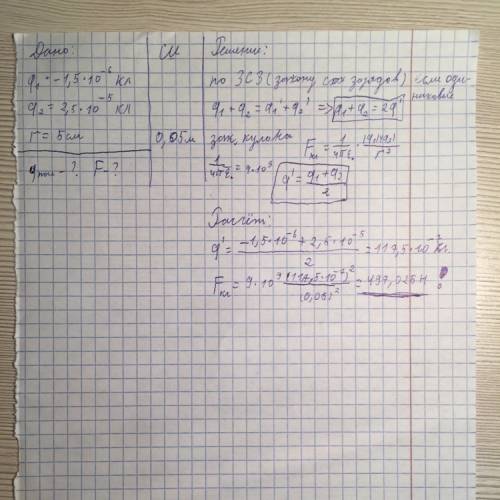 Дано:
q₁ = -1,5·10⁻⁶ Кл
q₂ = 2,5·10⁻⁵ Кл
r = 5 см
F-?
СИ
0,05 м
Решение:
по ЗСЗ (закону сох зарядов) если оди-
наковые
q₁ + q₂ = q₁' + q₂' => q₁ + q₂ = 2q'
зак. кулона Fкл = 1/4πε₀ · |q₁||q₂|/r²
1/4πε₀ = 9·10⁹ q' = (q₁ + q₂)/2
Расчёт:
q' = (-1,5·10⁻⁶ + 2,5·10⁻⁵)/2 = 117,5·10⁻⁷ Кл.
Fкл = 9·10⁹ (117,5·10⁻⁷)²/(0,05)² = 497,025 Н !